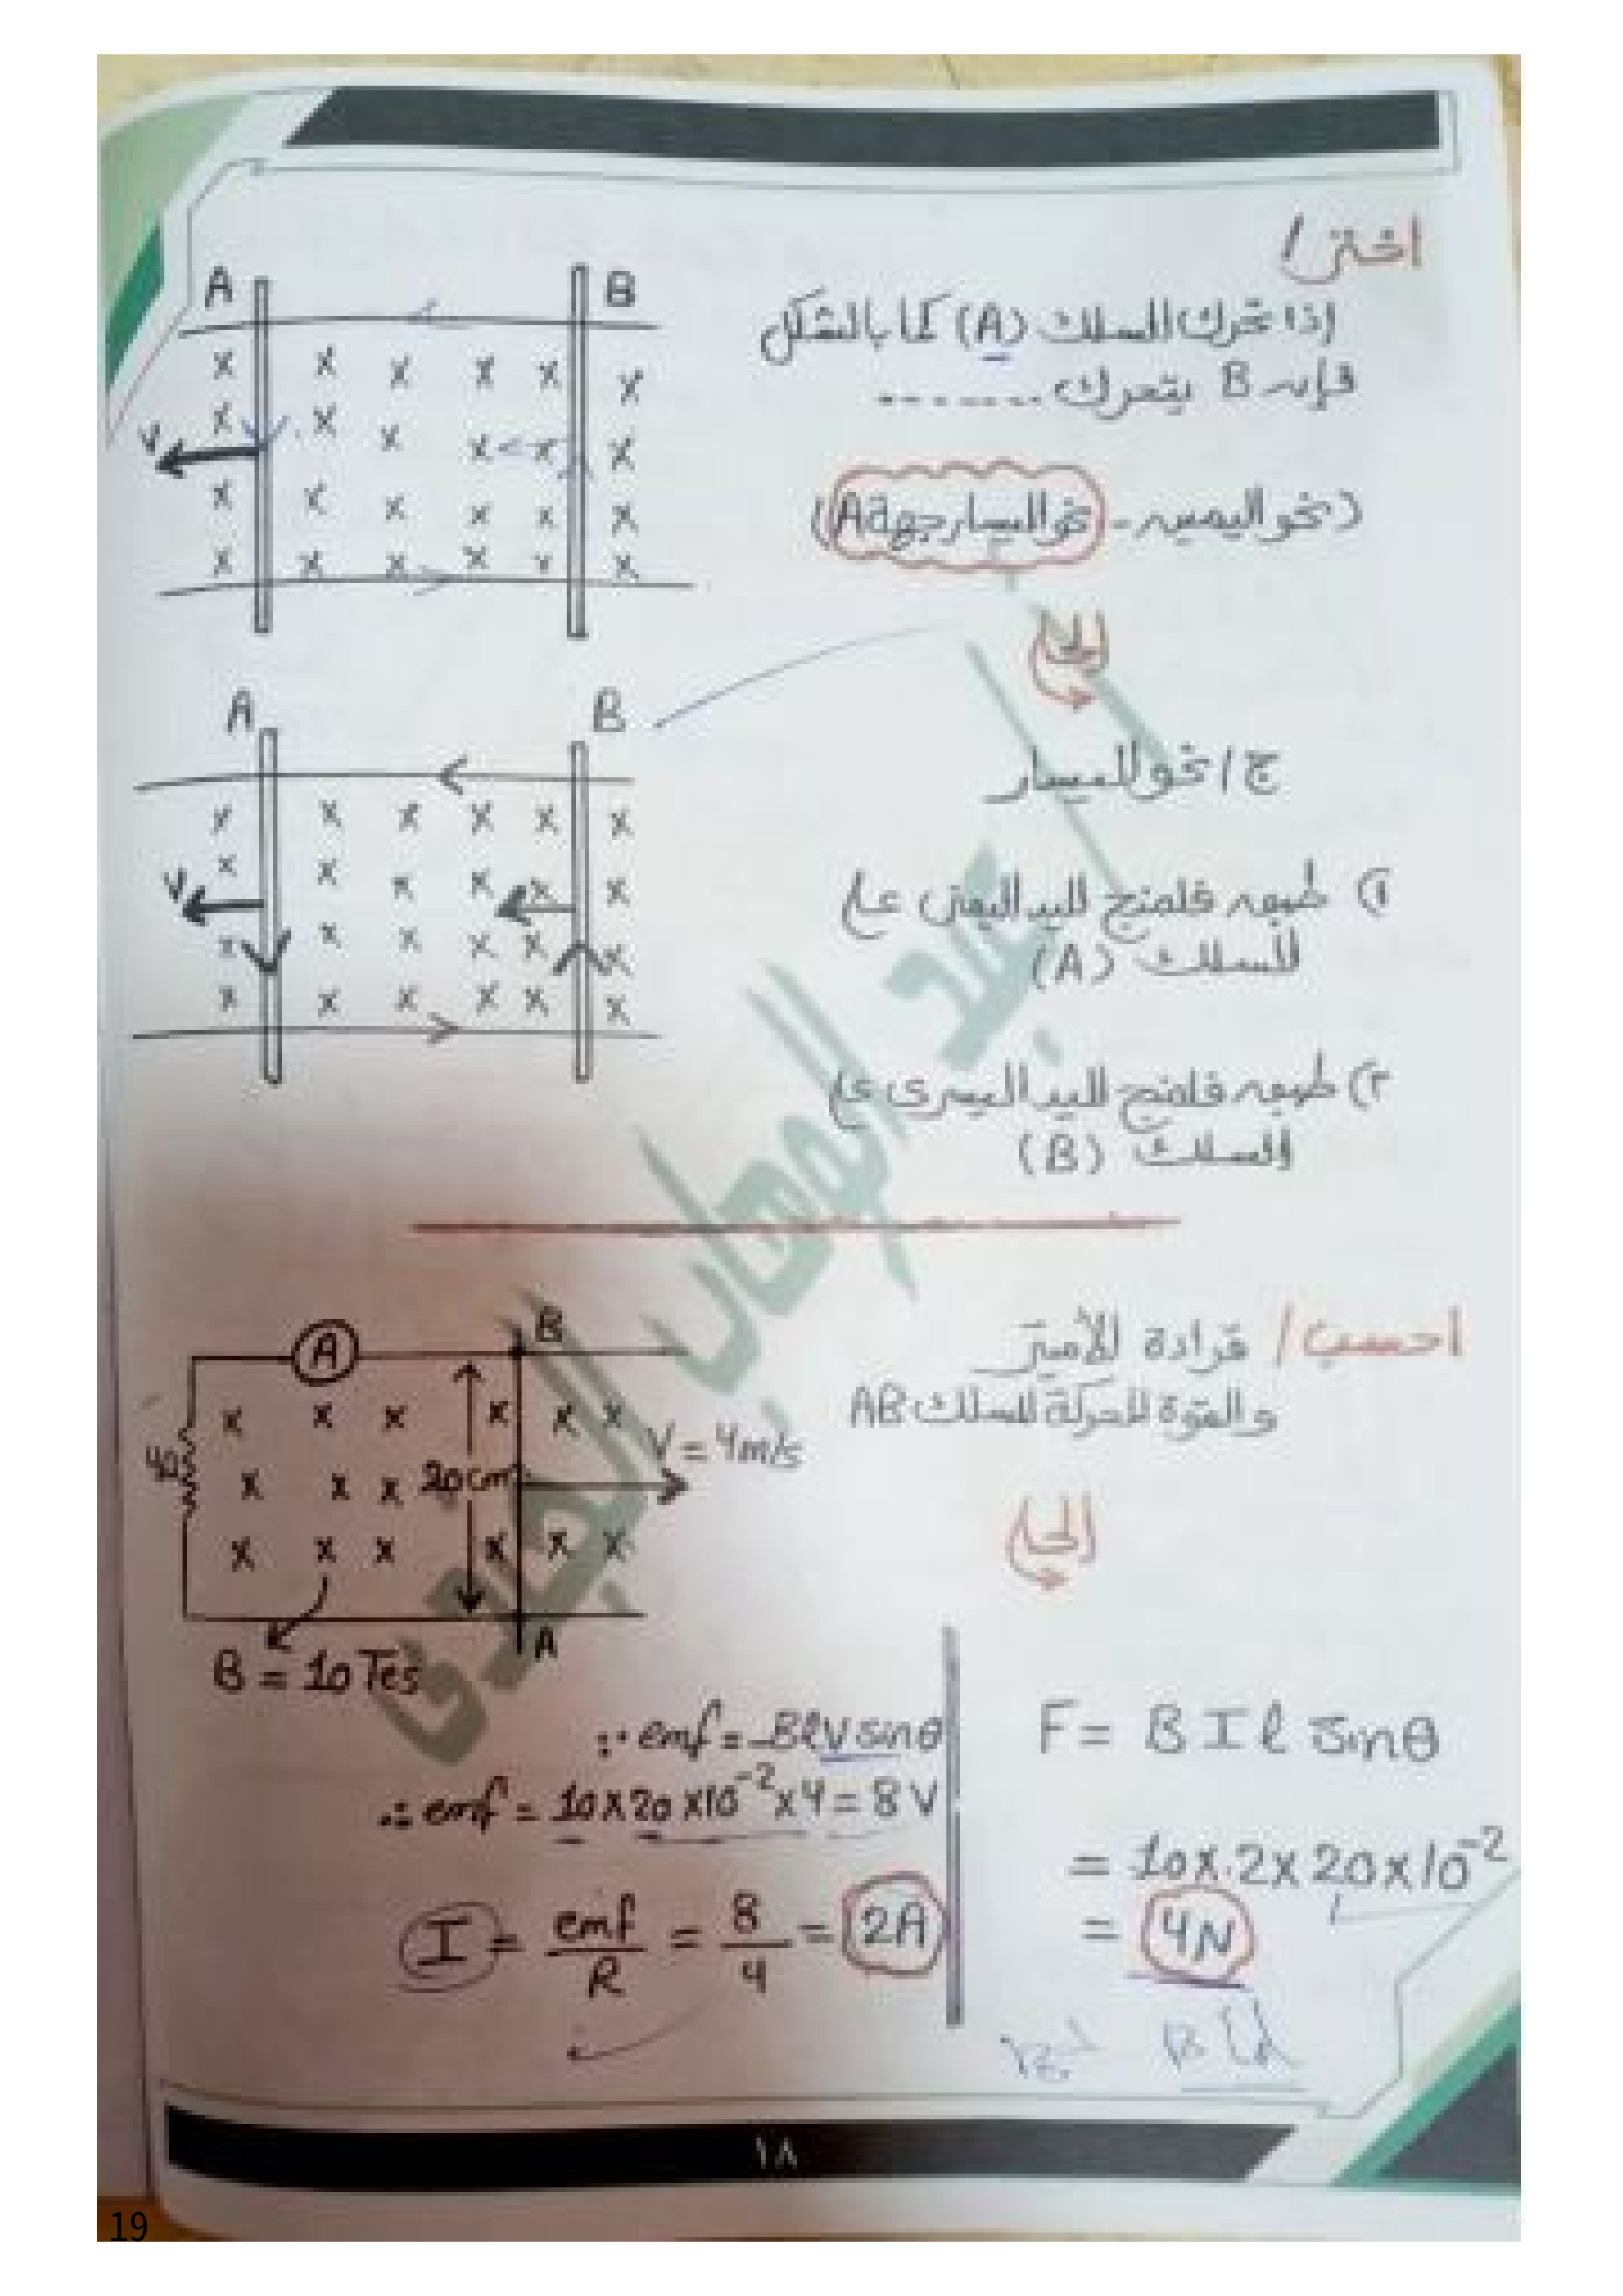 اختر /
إذا تحرك السلك (A) كما بالشكل
فإن B يتحرك .......
(نحو اليمين - نحو اليسار جهة A)
A B
V
الحل
ج / نحو اليسار
A B
V
١) طبق فلمنج لليد اليمنى على
السلك (A)
٢) طبق فلمنج لليد اليسرى على
السلك (B)
احسب / قراءة الأميتر
والقوة المحركة للسلك AB
A
B
V = 4m/s
20cm
4Ω
A
B = 10 Tes
الحل
∵ emf = -BℓV sinθ
∴ emf = 10 x 20 x 10⁻² x 4 = 8 V
I = emf / R = 8 / 4 = 2A
F = B I ℓ sinθ
= 10 x 2 x 20 x 10⁻²
= 4N
١٨
19